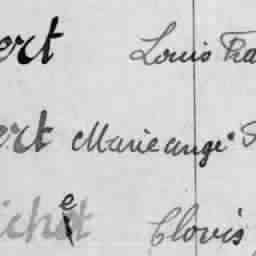 ert Louis Fra
ert Marieange
ichet Clovis